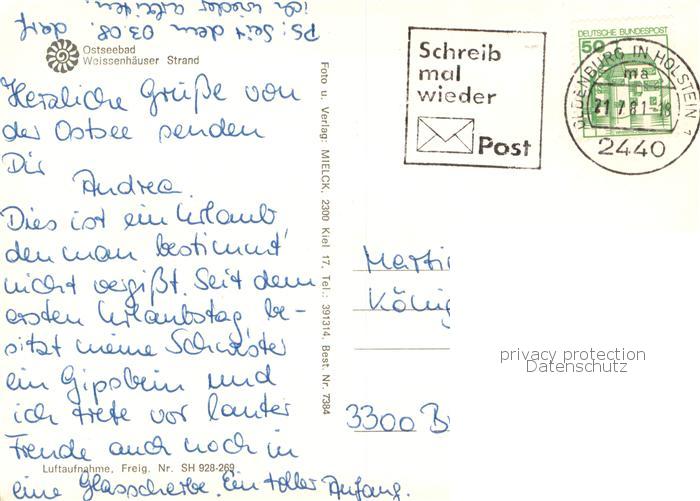 PS: Seit dem 03.08. darf
ich wieder arbeiten.
Ostseebad
Weissenhäuser Strand
Herzliche Grüße von
der Ostsee senden
Dir
Andrea.
Dies ist ein Urlaub
den man bestimmt
nicht vergißt. Seit dem
ersten Urlaubstag be-
sitzt meine Schwester
ein Gipsbein und
ich trete vor lauter
Freude auch noch in
eine Glasscherbe. Ein toller Anfang.
Luftaufnahme, Freig. Nr. SH 928-269
Foto u. Verlag: MIELCK, 2300 Kiel 17, Tel.: 391314, Best. Nr. 7384
Schreib
mal
wieder
Post
DEUTSCHE BUNDESPOST
50
OLDENBURG IN HOLSTEIN 1
ma
21.7.81-18
2440
Marti
König
3300 B
privacy protection
Datenschutz